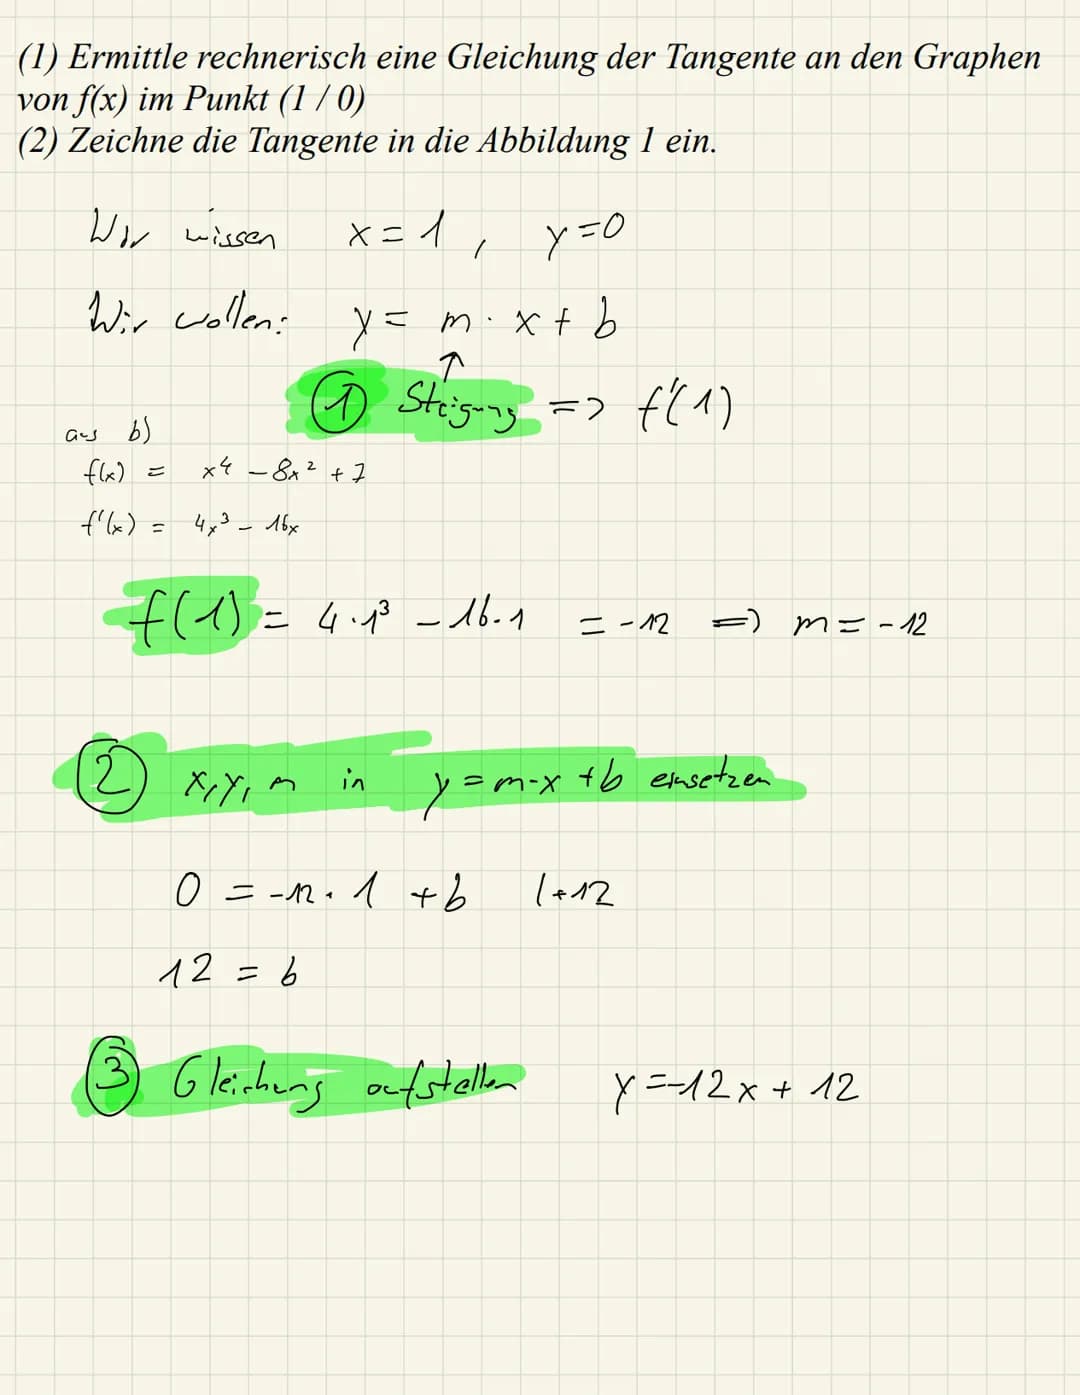 (1) Ermittle rechnerisch eine Gleichung der Tangente an den Graphen
von f(x) im Punkt (1 / 0)
(2) Zeichne die Tangente in die Abbildung 1 ein.
Wir wissen x = 1 , y = 0
Wir wollen: y = m · x + b
↑
① Steigung => f'(1)
aus b)
f(x) = x⁴ - 8x² + 7
f'(x) = 4x³ - 16x
f(1) = 4·1³ - 16·1 = -12 => m = -12
② x, y, m in y = m·x + b einsetzen
0 = -12 · 1 + b |+12
12 = b
③ Gleichung aufstellen y = -12x + 12